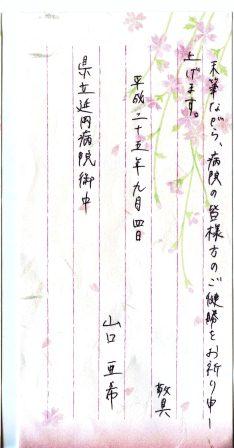 末筆ながら、病院の皆様方のご健勝をお祈り申し
上げます。
平成二十五年九月四日
敬具
山口 亜希
県立延岡病院御中